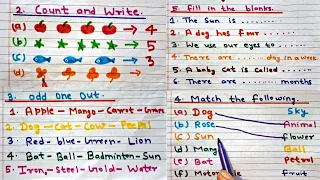 2. Count and Write.
(a) → 4
(b) → 5
(c) → 3
(d) →
3. odd One Out.
1. Apple - Mango - Carrot - Grapes
2. Dog - Cat - Cow - Peepal
3. Red - blue - Green - Lion
4. Bat - Ball - Badminton - Sun
5. Iron, - Steel - Gold - Water
5. Fill in the blanks.
1. The Sun is
2. A dog has four
3. We use our eyes to
4. There are days in a week.
5. A baby cat is called
6. There are months
4. Match the following.
(a) Dog Sky.
(b) Rose Animal
(c) Sun flower
(d) Ball
(e) Bat Petrol
(f) Motorbike fruit